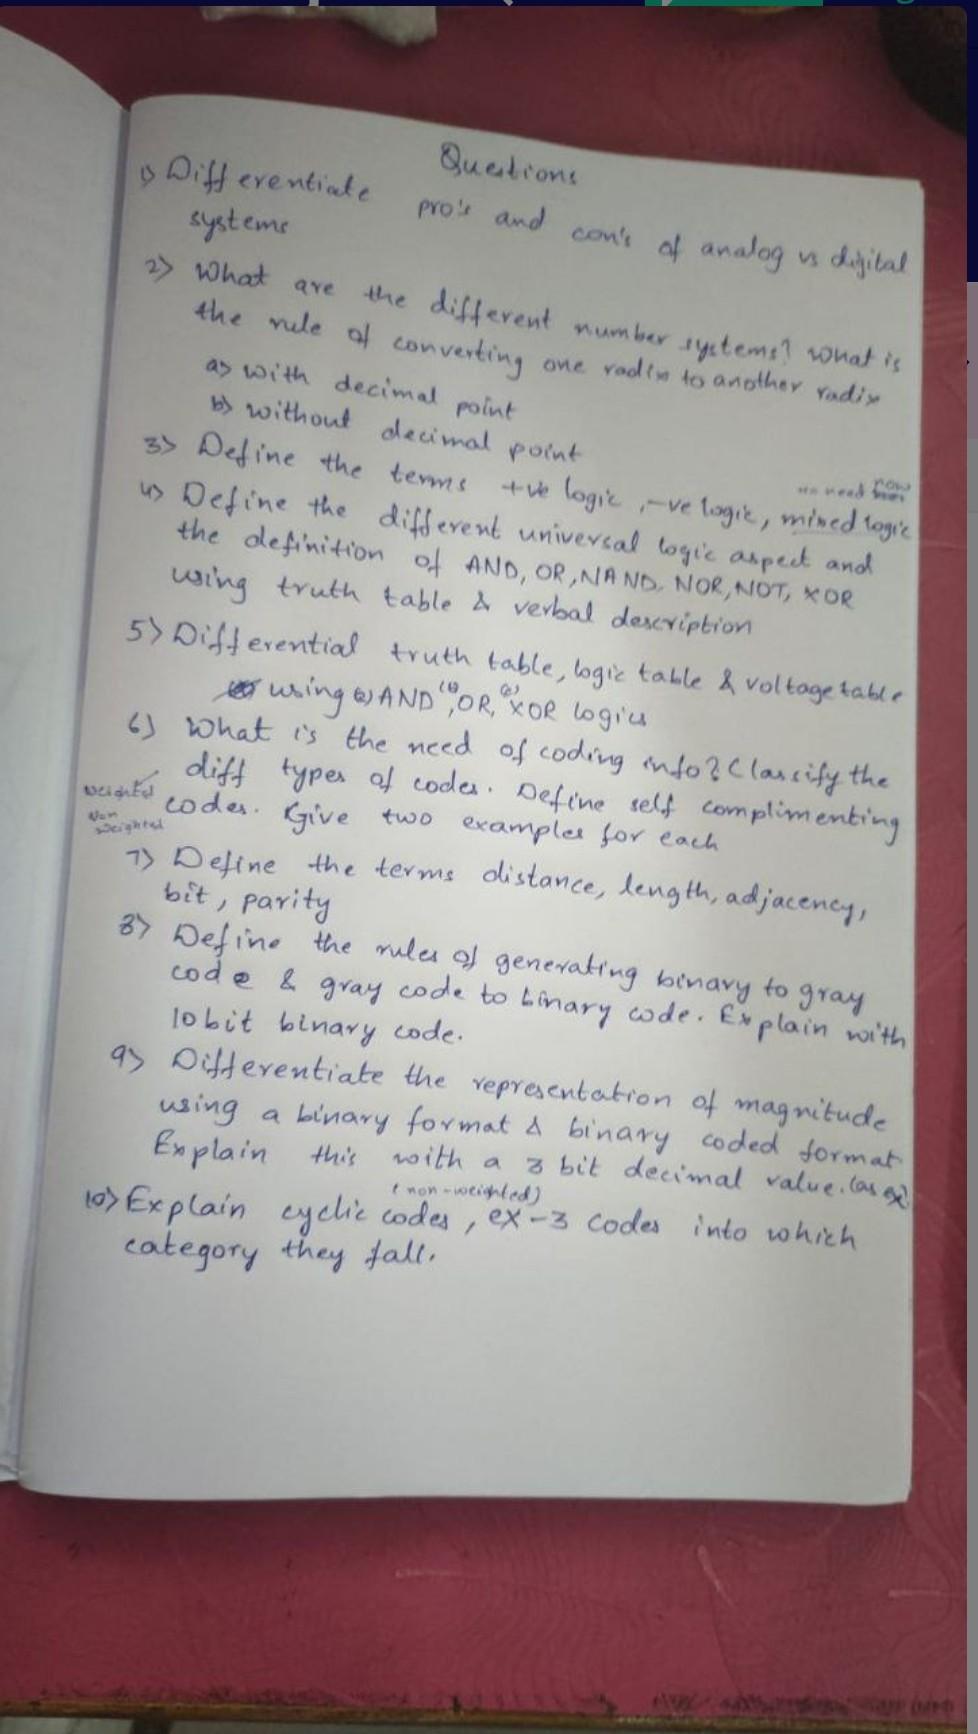 Questions
1) Differentiate pro's and con's of analog vs digital
systems
2) What are the different number systems? What is
the rule of converting one radix to another radix
a) with decimal point
b) without decimal point
3) Define the terms +ve logic, -ve logic, mixed logic
no need now
4) Define the different universal logic aspect and
the definition of AND, OR, NAND, NOR, NOT, XOR
using truth table & verbal description
5) Differential truth table, logic table & voltage table
using (a) AND (b), OR, (c) XOR logics
6) What is the need of coding info? Classify the
diff types of codes. Define self complimenting
codes. Give two examples for each
weighted
Non
weighted
7) Define the terms distance, length, adjacency,
bit, parity
8) Define the rules of generating binary to gray
code & gray code to binary code. Explain with
10 bit binary code.
9) Differentiate the representation of magnitude
using a binary format & binary coded format
Explain this with a 3 bit decimal value. (as ex)
(non-weighted)
10) Explain cyclic codes, ex-3 codes into which
category they fall.